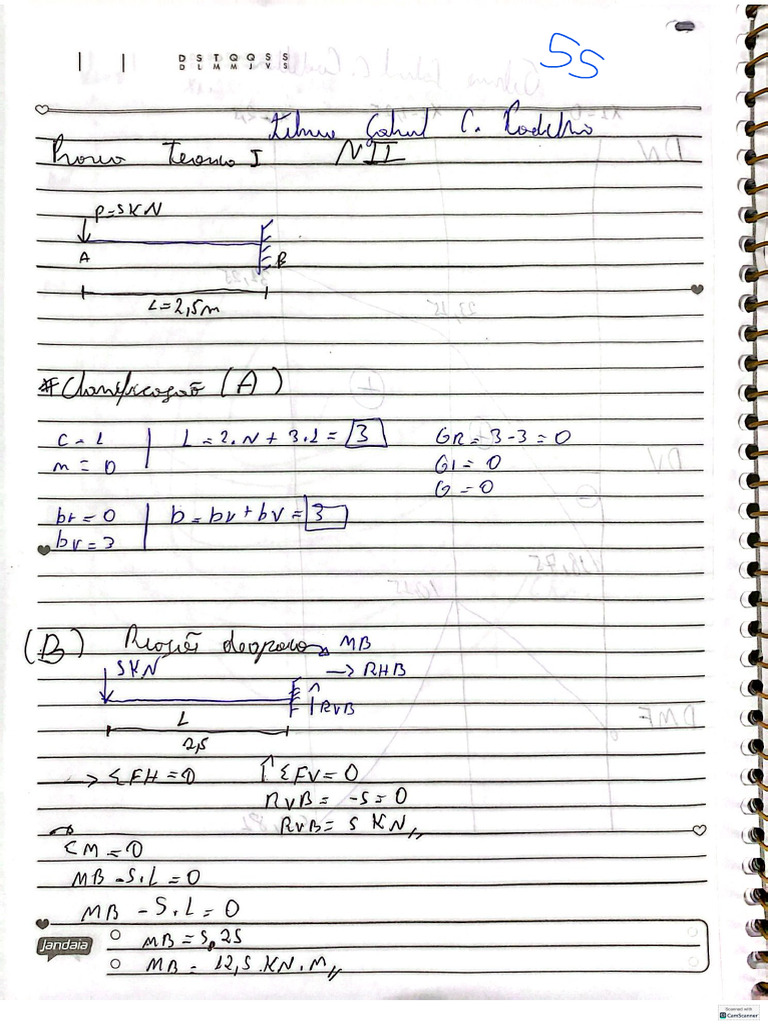 D S T Q Q S S
D L M M J V S
55
C.
I NII
P=5KN
A B
L=2,5m
#Classificação (A)
C = 1 L = 2.N + 3.1 = 3 GR = 3-3 = 0
m = 0 GI = 0
G = 0
bt = 0 b = bv + bv = 3
bv = 3
(B) Reações de apoio MB
5KN → RHB
↑RVB
L
2,5
→ ΣFH = 0 ↑ΣFV = 0
RVB = -5 = 0
RVB = 5 KN
ΣM = 0
MB - 5.L = 0
MB - 5.L = 0
Jandaia
MB = 5,25
MB = 12,5.KN.M
Scanned with
CamScanner